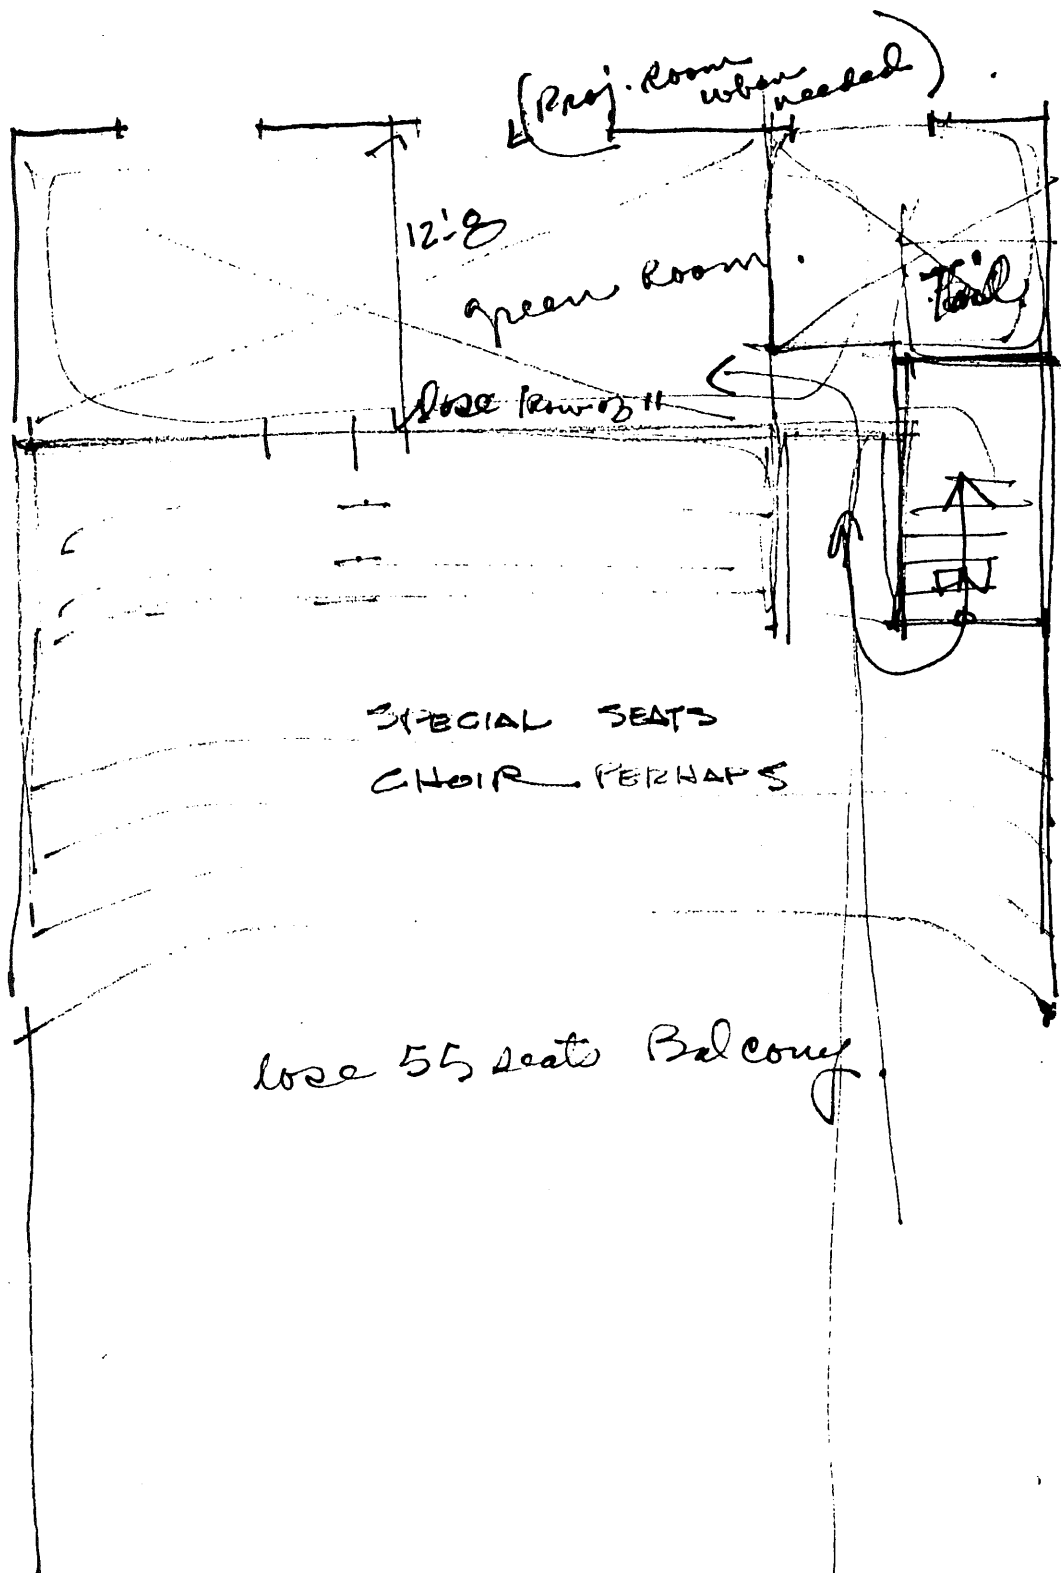 (Proj. Room
when
needed)
12'-8
green Room.
Toil,
lose 1 row of 11
DN
SPECIAL SEATS
CHOIR PERHAPS
lose 55 seats Balcony